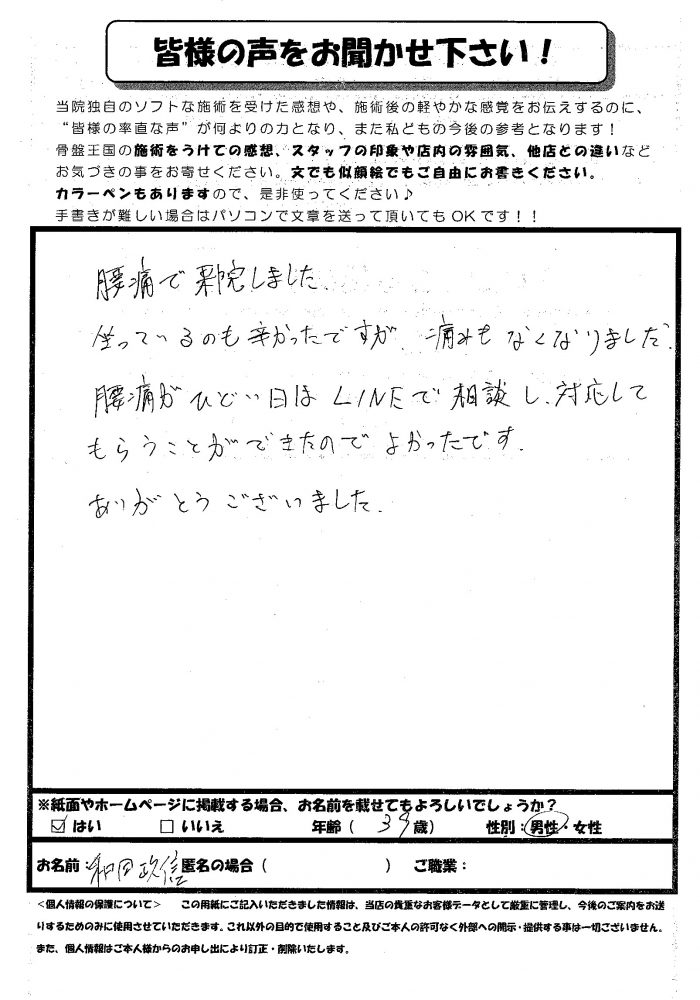 皆様の声をお聞かせ下さい！
当院独自のソフトな施術を受けた感想や、施術後の軽やかな感覚をお伝えするのに、
“皆様の率直な声”が何よりの力となり、また私どもの今後の参考となります！
骨盤王国の施術をうけての感想、スタッフの印象や店内の雰囲気、他店との違いなど
お気づきの事をお寄せください。文でも似顔絵でもご自由にお書きください。
カラーペンもありますので、是非使ってください♪
手書きが難しい場合はパソコンで文章を送って頂いてもOKです！！
腰痛で来院しました。
坐っているのも辛かったですが、痛みもなくなりました。
腰痛がひどい日はLINEで相談し、対応して
もらうことができたのでよかったです。
ありがとうございました。
※紙面やホームページに掲載する場合、お名前を載せてもよろしいでしょうか？
☑はい　□いいえ　年齢（ 39歳）　性別：男性・女性
お名前：和田政信 匿名の場合（　　　）　ご職業：
＜個人情報の保護について＞　この用紙にご記入いただきました情報は、当店の貴重なお客様データとして厳重に管理し、今後のご案内をお送
りするためのみに使用させていただきます。これ以外の目的で使用すること及びご本人の許可なく外部への開示・提供する事は一切ございません。
また、個人情報はご本人様からのお申し出により訂正・削除いたします。